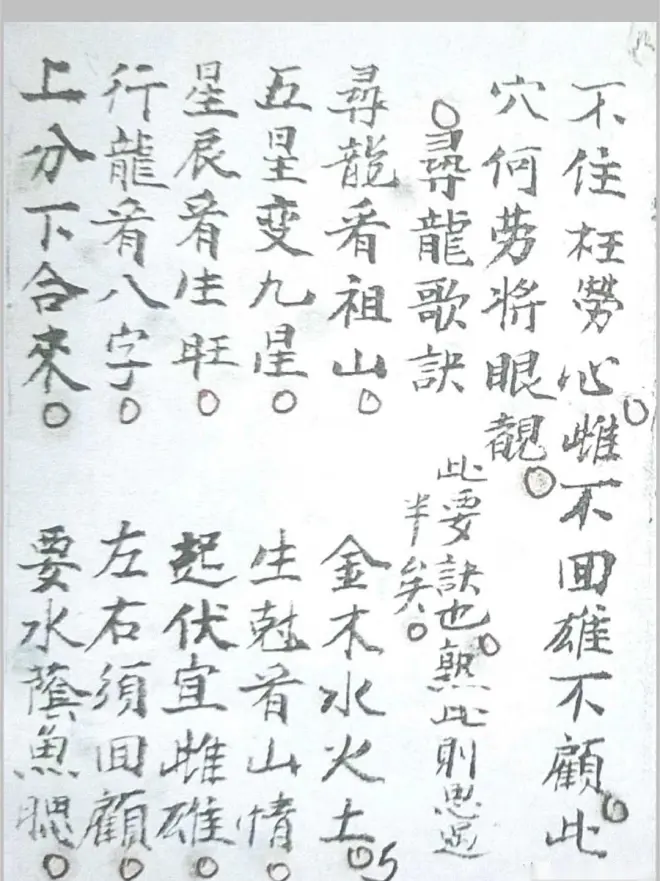 不住枉勞心。雌不回雄不顧。此
穴何劳將眼覩。
○尋龍歌訣 此要訣也。熟此則思過
半矣。
尋龍看祖山。金木水火土。5
五星变九星。生尅看山情。
星辰看生旺。起伏宜雌雄。
行龍看八字。左右須回顧。
上分下合來。要水蔭魚腮。